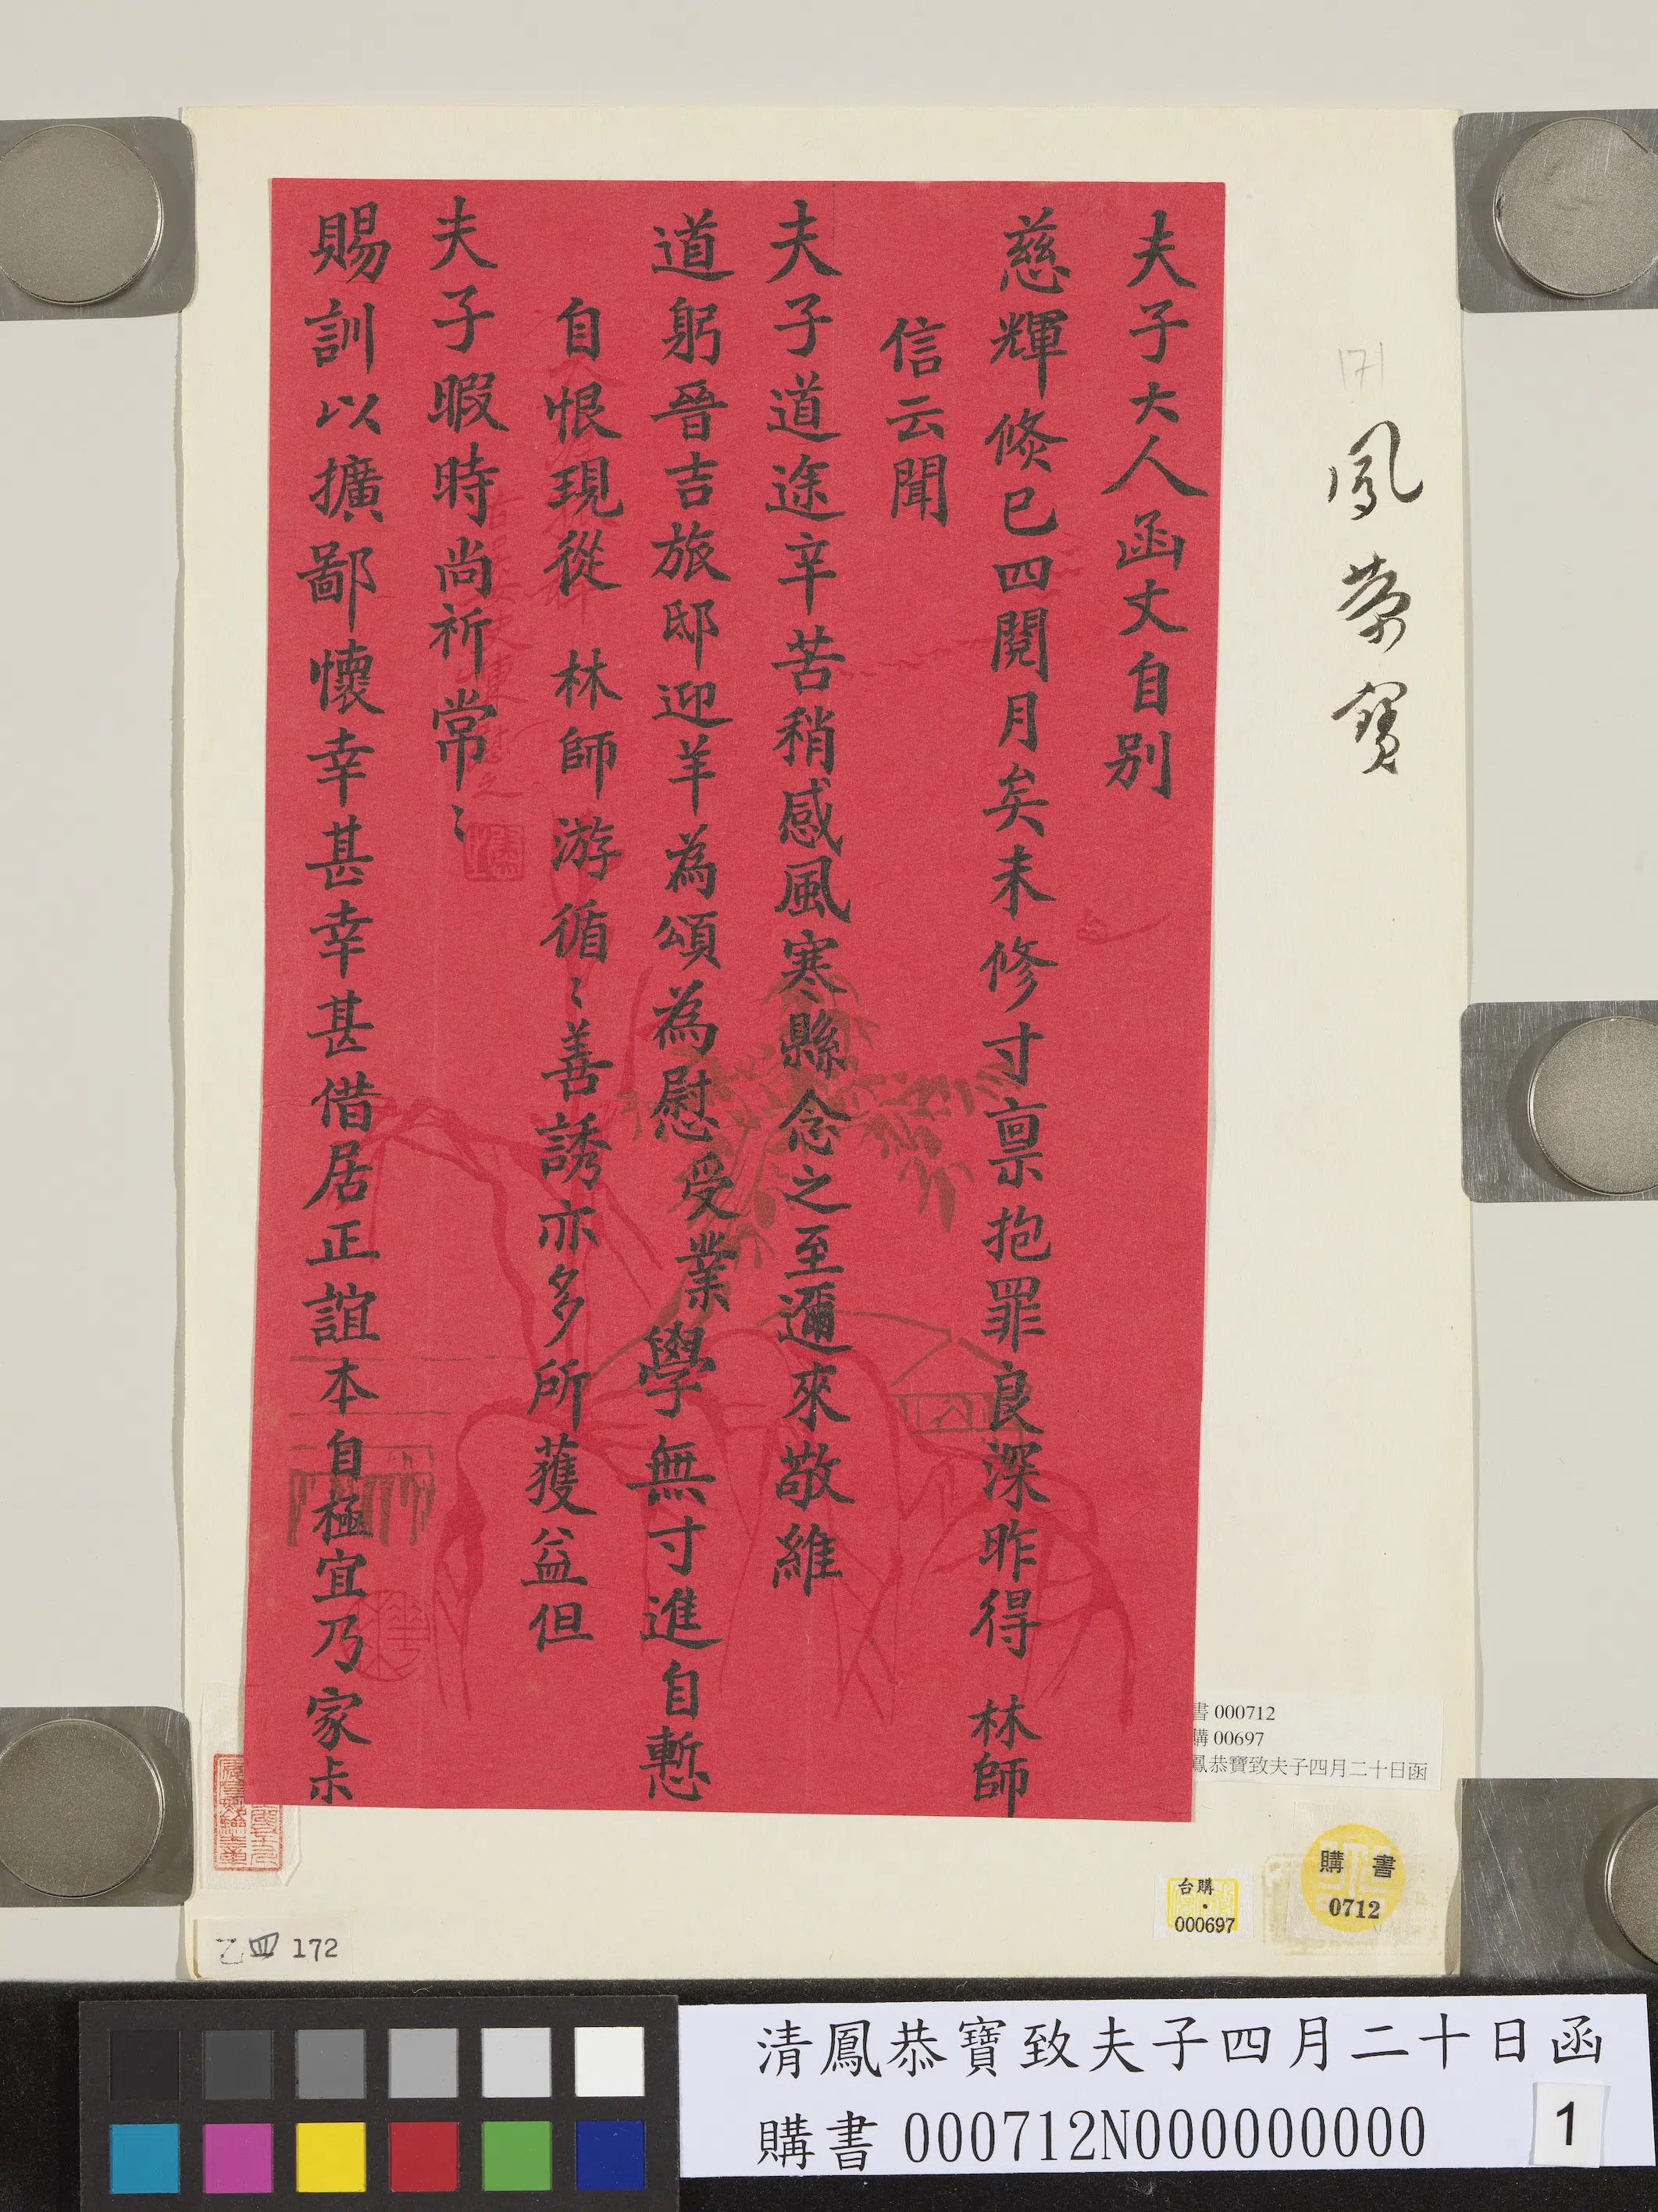 夫子大人函丈自别
慈輝倐已四閱月矣未修寸禀抱罪良深昨得 林師
信云聞
夫子道途辛苦稍感風寒縣念之至邇來敬維
道躬晉吉旅邸迎羊為頌為慰受業學無寸進自慙
自恨現從 林師游循〻善誘亦多所獲益但
夫子暇時尚祈常〻
賜訓以擴鄙懷幸甚幸甚借居正誼本自極宜乃家尗
171
鳳恭寶
書 000712
購 00697
鳳恭寶致夫子四月二十日函
購 書
0712
台購
000697
乙四 172
清鳳恭寶致夫子四月二十日函
購書 000712N000000000
1